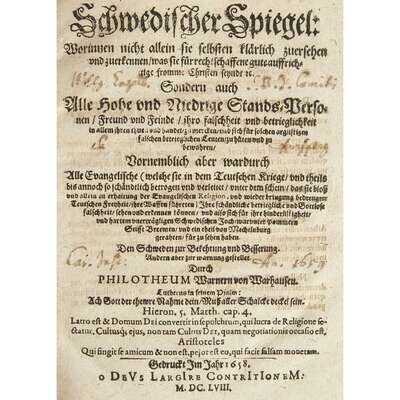 Schwedischer Spiegel:
Worinnen nicht allein sie selbsten klärlich zuersehen
vnd zuerkennen / was sie für rechtschaffene gute auffrich-
tige fromme Christen seyndt ꝛc.
Sondern auch
Alle Hohe vnd Niedrige Stands-Perso-
nen / Freund vnd Feinde / ihro falschheit vnd betrieglichkeit
in allem ihren thut vnd handel zumercken / vnd sich für solchen argliftigen
falschen betrieglichen Leuten / zu hüten vnd zu
bewahren /
Vornemblich aber wardurch
Alle Evangelische (welche sie in dem Teutschen Kriege / vnd theils
biß annoch so schändtlich betrogen vnd verleitet / vnter dem schein / daß sie bloß
vnd allein zu erhaltung der Evangelischen Religion, vnd wieder bringung bedrengter
Teutschen Freyheit / ihre Waffen führeten) Ihre schändtliche betriegliche vnd Gottlose
falschheit / sehen vnd erkennen können / vnd also sich für ihre hinderlistigkeit /
vnd hartem vnerträglichen Schwedischen Joch / warunter Pommern
Stifft Breemen / vnd ein theil von Mechelnburg
gerahten / für zu sehen haben.
Den Schweden zur Bekehrung vnd Besserung.
Andern aber zur warnung gestellet.
Durch
PHILOTHEUM Warnern von Warhausen.
Lutherus in seinem Psalm:
Ach Gott der thewre Nahme dein / Muß aller Schalcke deckel sein.
Hieron, 5. Matth. cap. 4.
Latro est & Domum DEI convertit in sepulchrum, qui lucra de Religione se-
ctatur, Cultusq; ejus, non tam Cultus DEI, quam negotiationis occasio est,
Aristoteles
Qui fingit se amicum & non est, pejor est eo, qui facit falsam monetam.
Gedruckt Im Jahr 1658.
O DEVS LARGIRE CONTRITIONEM:
M. DC. LVIII.